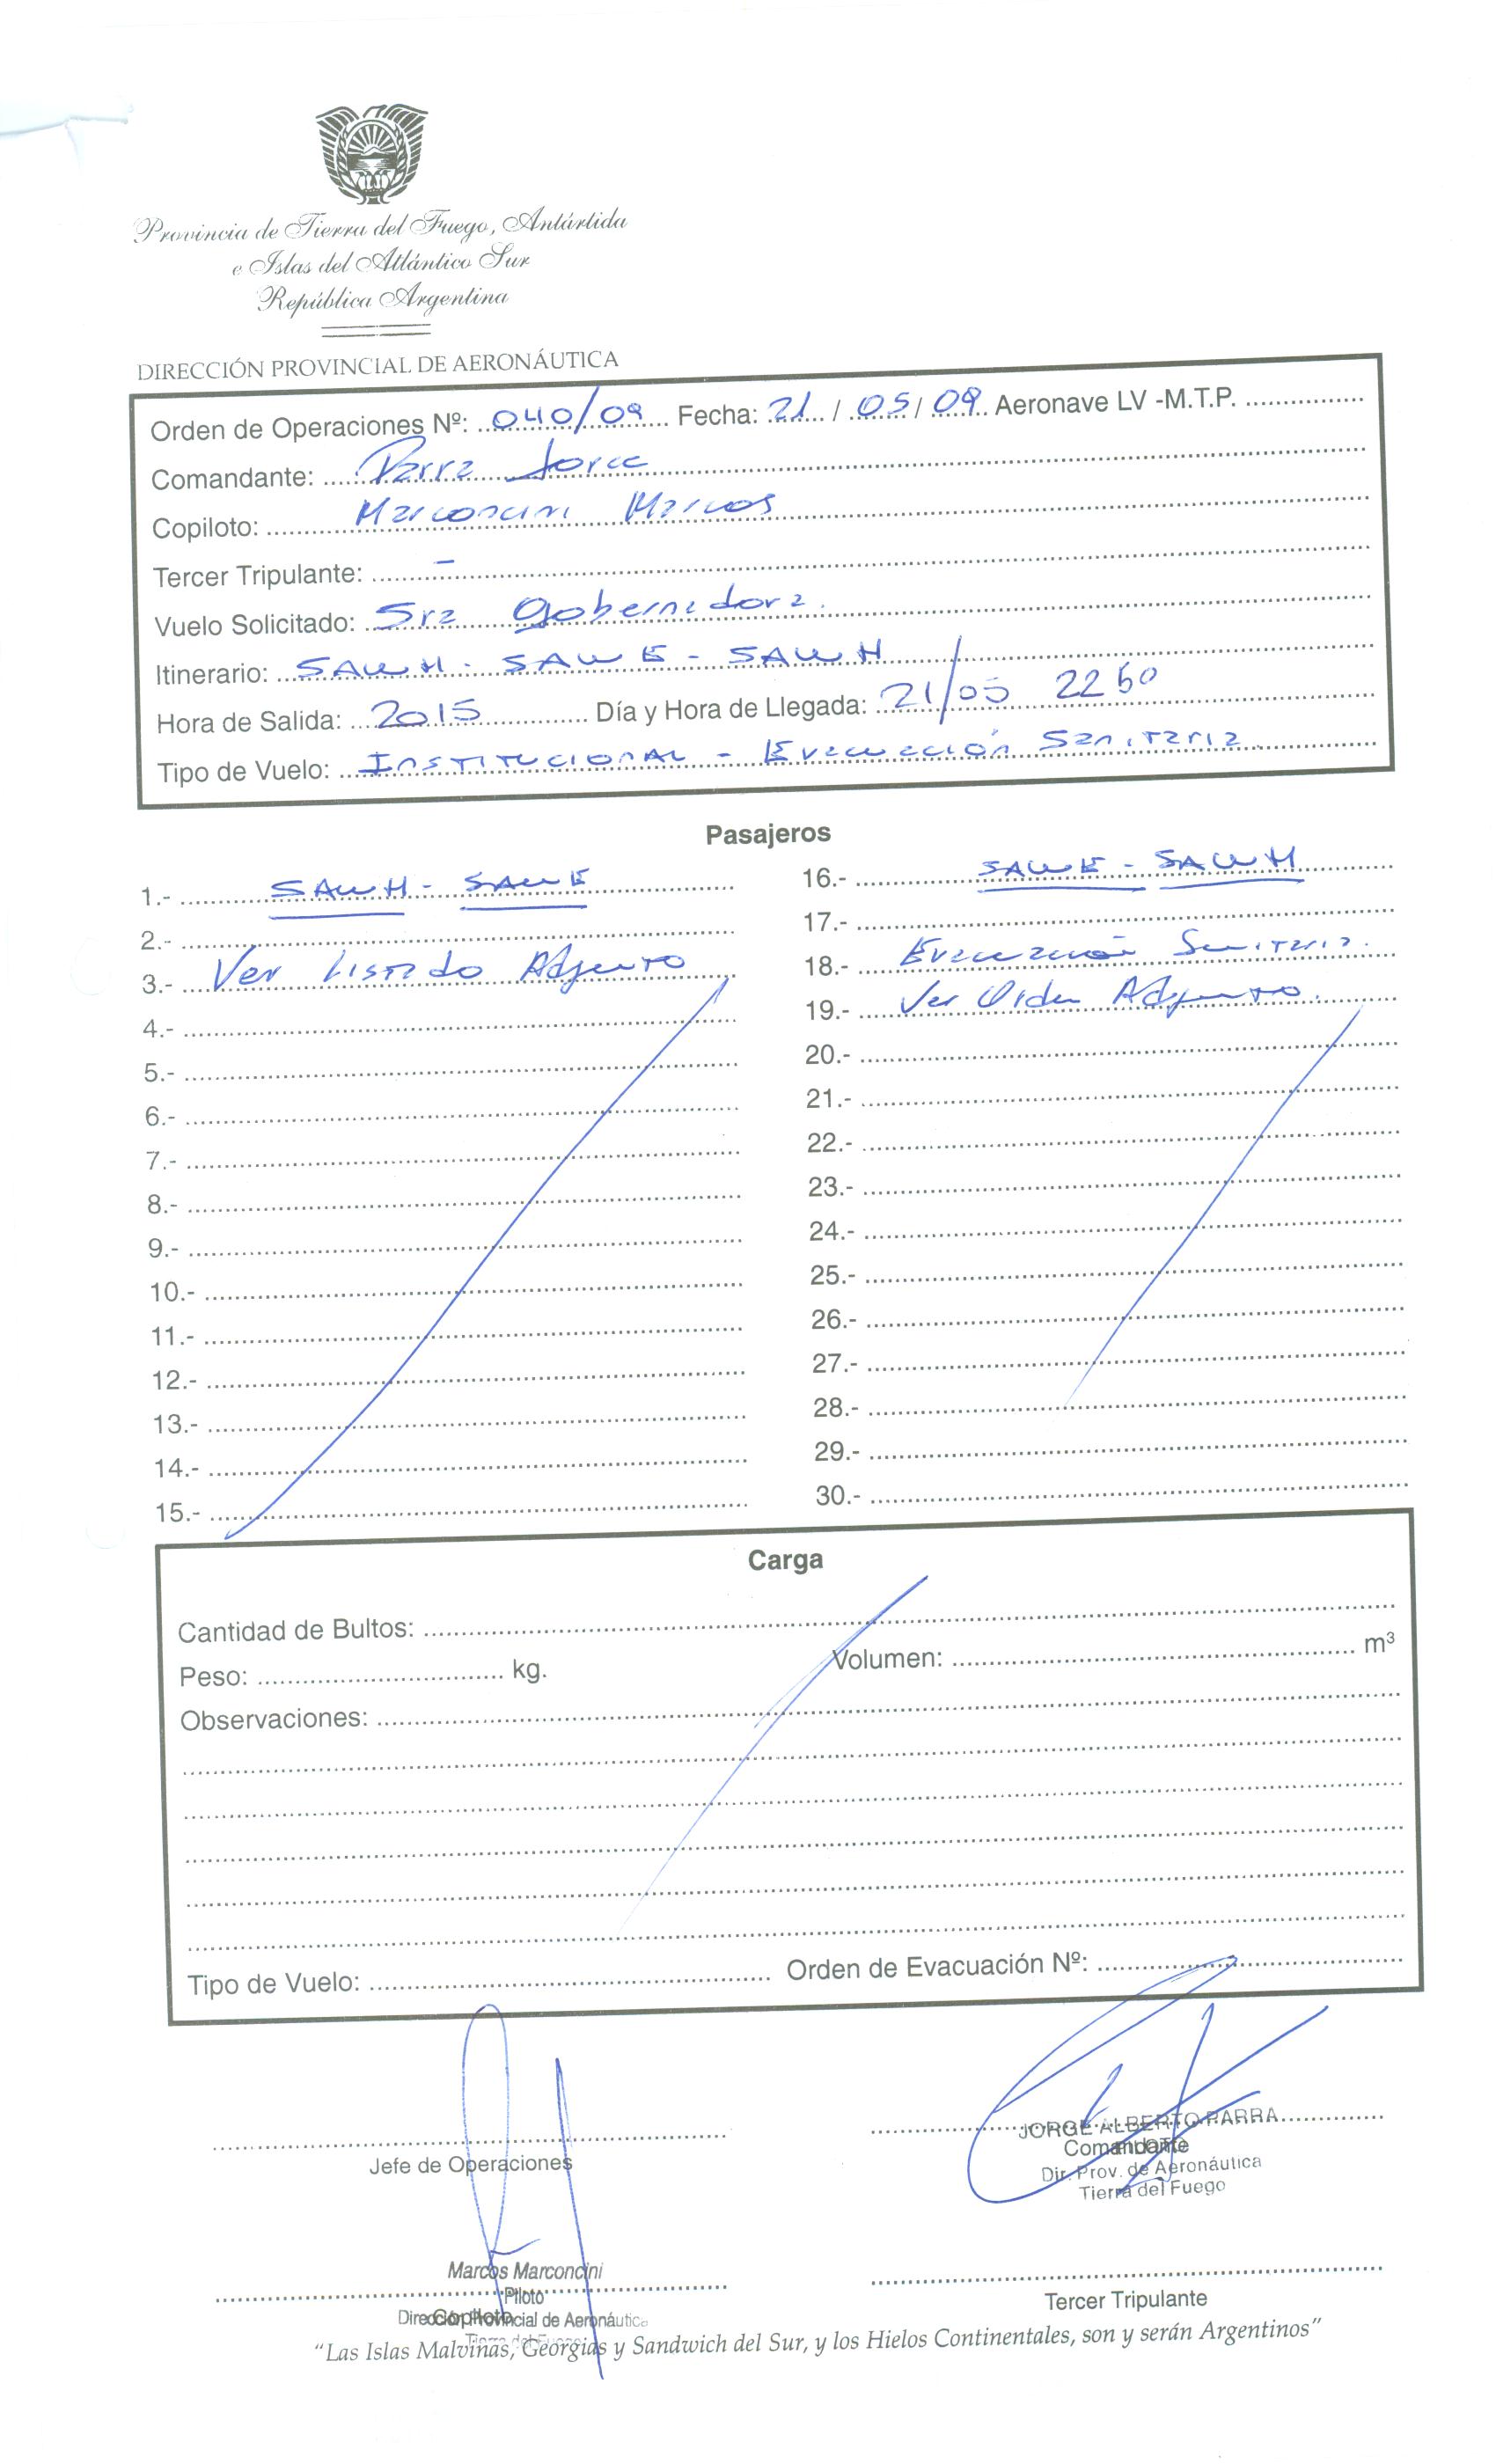 Provincia de Tierra del Fuego, Antártida
e Islas del Atlántico Sur
República Argentina
DIRECCIÓN PROVINCIAL DE AERONÁUTICA
Orden de Operaciones Nº: 040/09 Fecha: 21 / 05 / 09 Aeronave LV -M.T.P.
Comandante: Parra Jorge
Copiloto: Marconcini Marcos
Tercer Tripulante: -
Vuelo Solicitado: Sra Gobernadora.
Itinerario: SAWH - SAWE - SAWH
Hora de Salida: 2015 Día y Hora de Llegada: 21/05 2250
Tipo de Vuelo: INSTITUCIONAL - Evacuación Sanitaria
Pasajeros
1.- SAWH - SAWE
2.-
3.- Ver Listado Adjunto
4.-
5.-
6.-
7.-
8.-
9.-
10.-
11.-
12.-
13.-
14.-
15.-
16.- SAWE - SAWH
17.-
18.- Evacuación Sanitaria.
19.- Ver Orden Adjunto.
20.-
21.-
22.-
23.-
24.-
25.-
26.-
27.-
28.-
29.-
30.-
Carga
Cantidad de Bultos:
Peso: kg. Volumen: m³
Observaciones:
Tipo de Vuelo: Orden de Evacuación Nº:
Jefe de Operaciones
JORGE ALBERTO PARRA
Comandante
PILOTO
Dir. Prov. de Aeronáutica
Tierra del Fuego
Marcos Marconcini
Piloto
Copiloto
Dirección Provincial de Aeronáutica
Tierra del Fuego
Tercer Tripulante
“Las Islas Malvinas, Georgias y Sandwich del Sur, y los Hielos Continentales, son y serán Argentinos”